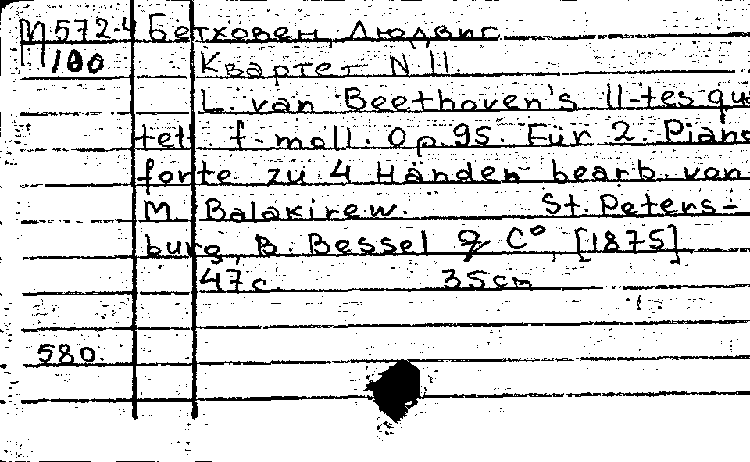 М572.4 Бетховен, Людвиг
М100 Квартет N 11.
L. van Beethoven's 11-tes qu
tett f-moll. Op. 95. Für 2. Piano
forte zu 4 Händen bearb. von
M. Balakirew. St. Peters-
burg, B. Bessel & Cº, [1875]
47 c. 35 cm
580.